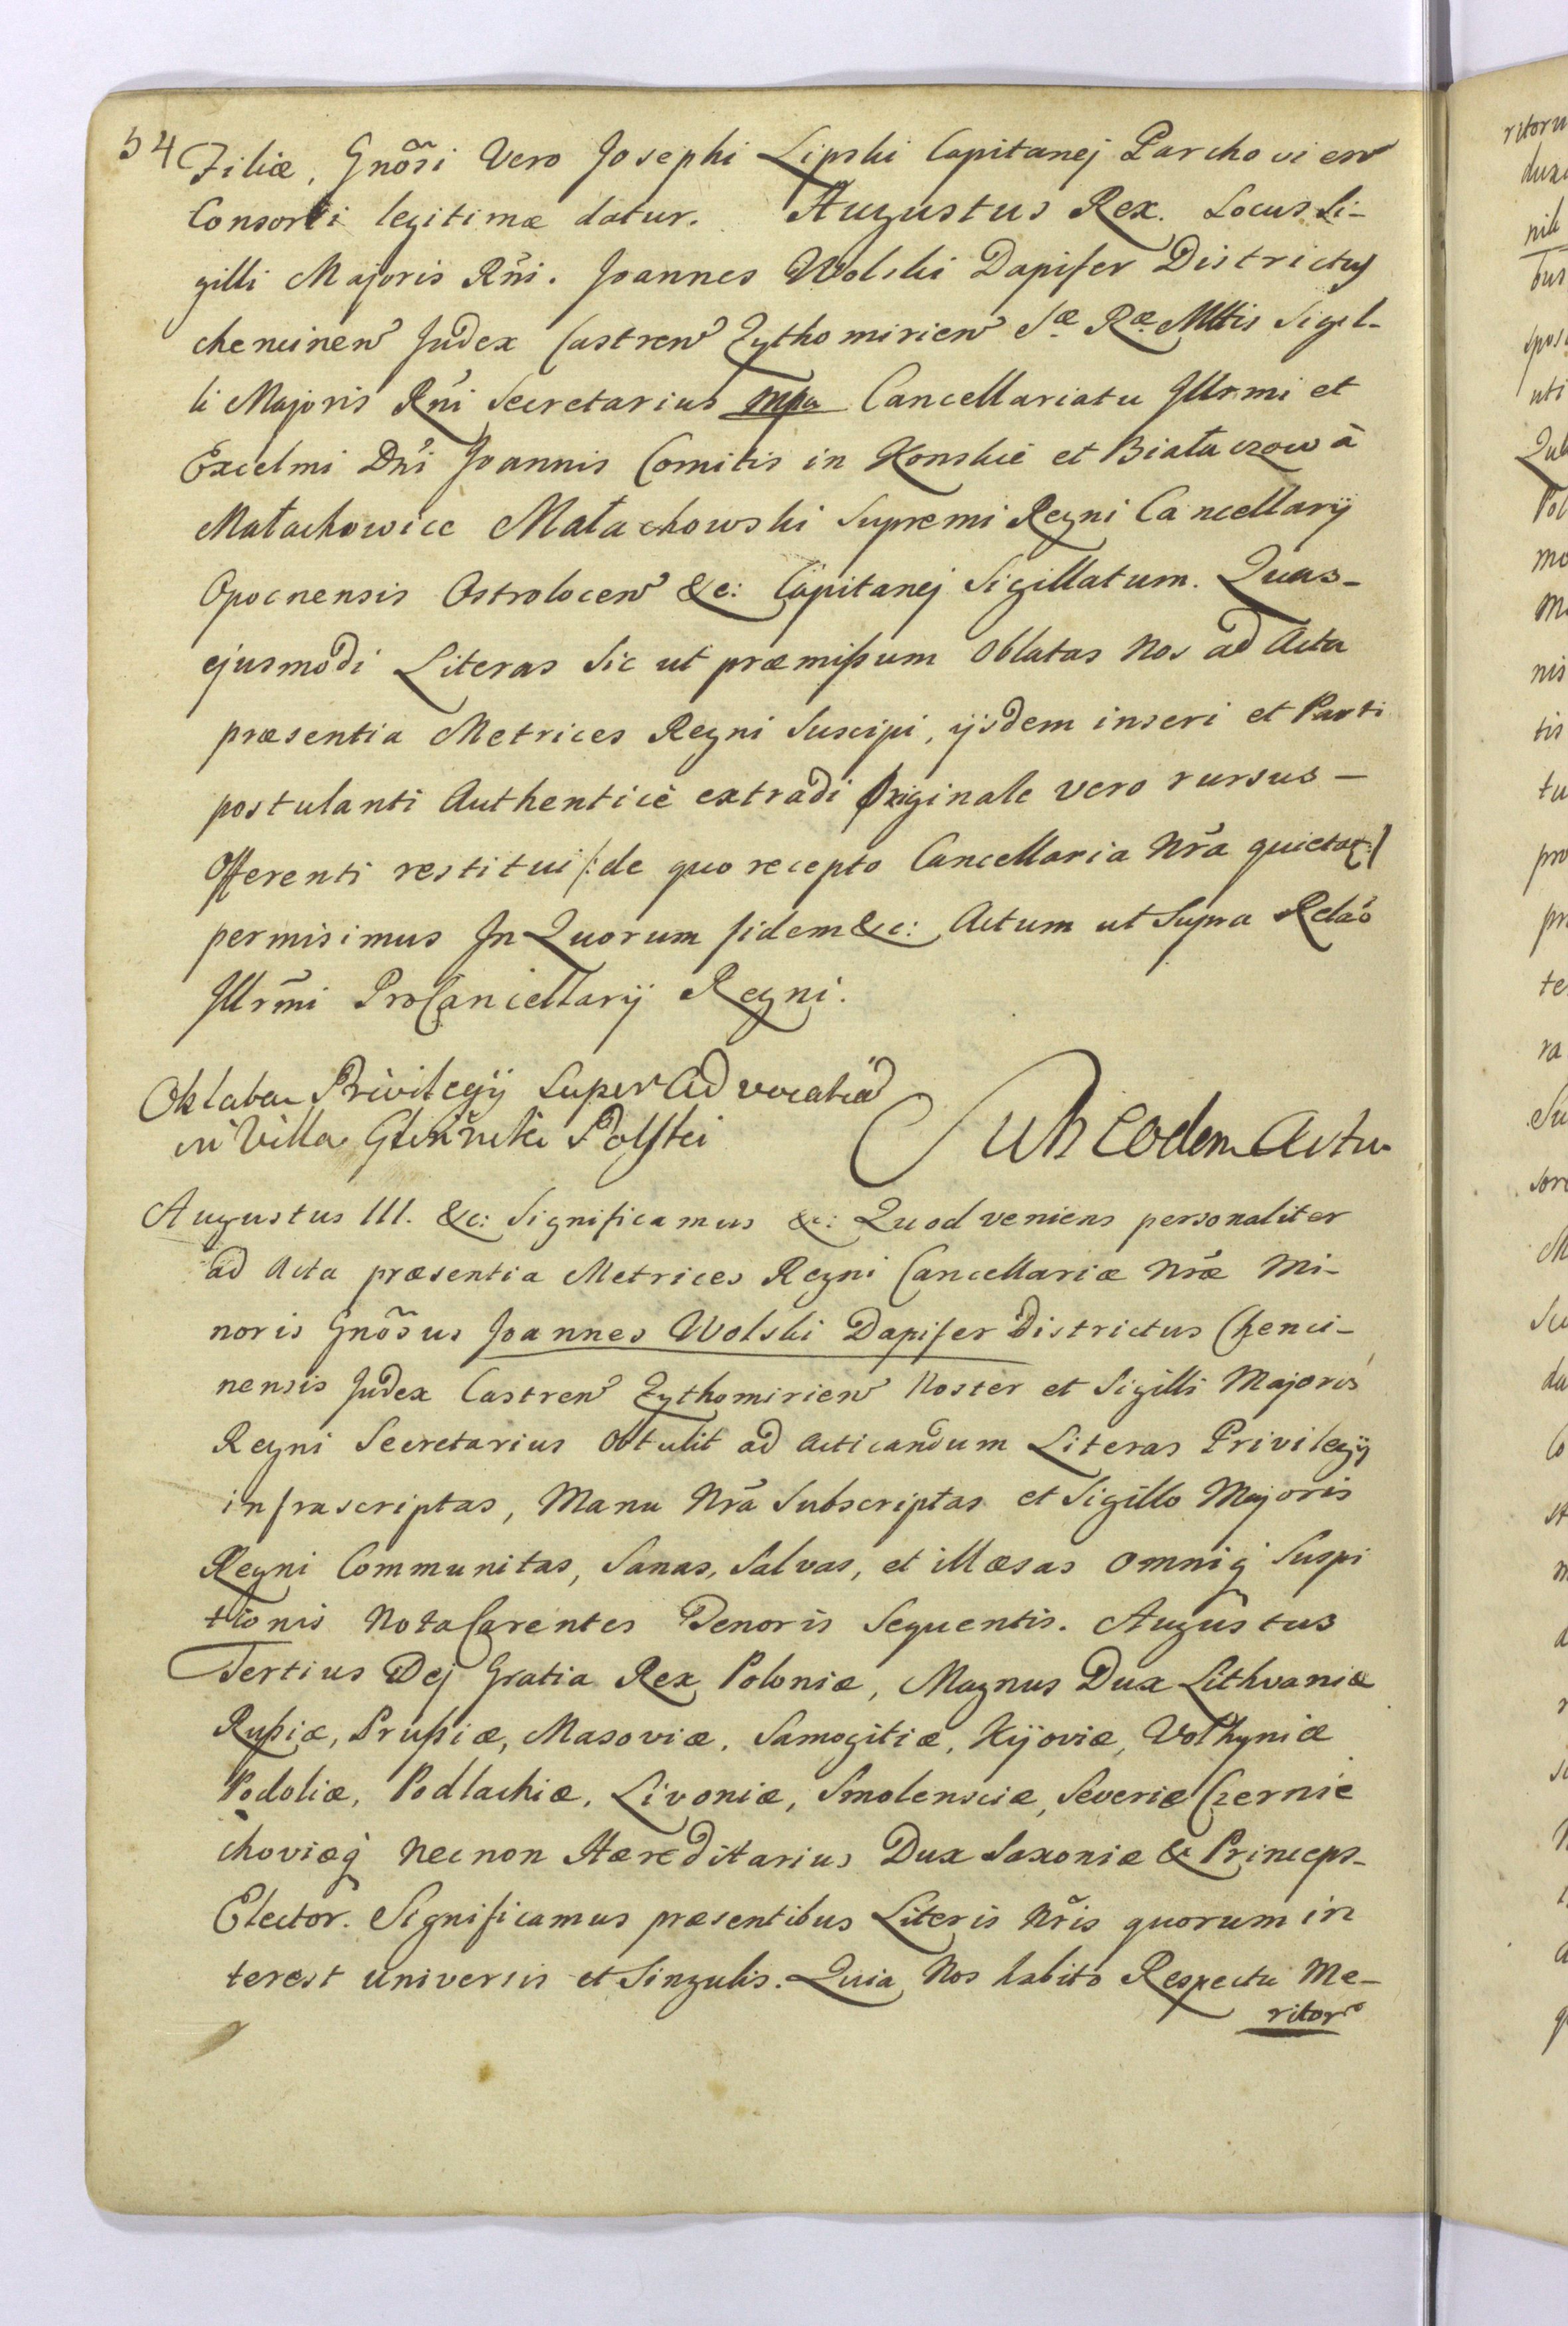 54
Filiæ, Gnõsi Vero Josephi Lipski Capitanej Parchovien̄
Consorti legitimæ datur. Augustus Rex. Locus Si-
gilli Majoris Rñi. Joannes Wolski Dapifer Districtus
chencinen̄ Judex Castren̄ Zythomirien̄ Sæ Ræ Mttis Sigil-
li Majoris Rñi Secretarius mpa Cancellariatu Jllrmi et
Excelmi Dñi Joannis Comitis in Konskie et Białaczow à
Małachowice Małachowski Supremi Regni Cancellarij
Opocnensis Ostrolocen̄ &c: Capitanej Sigillatum. Quas-
ejusmodi Literas Sic ut præmißum Oblatas Nos ad Acta
præsentia Metrices Regni Suscipi, ijsdem inseri et Parti
postulanti Authenticè extradi Originale vero rursus-
Offerenti restitui /: de quo recepto Cancellaria Nrã quietat :/
permisimus Jn Quorum fidem &c: Actum ut Supra Relaõ
Jllrm̃i ProCancellarij Regni.
Oblata Privilegij Super Advocatiã
in Villa Glinnik Polski
Sub eodem Actu
Augustus III. &c: Significamus &c: Quod veniens personaliter
ad Acta præsentia Metrices Regni Cancellariæ Nræ Mi-
noris Gnõsus Joannes Wolski Dapifer Districtus Chenci-
nensis Judex Castren̄ Zythomirien̄ Noster et Sigilli Majoris
Regni Secretarius Obtulit ad Acticandum Literas Privilegij
infrascriptas, Manu Nrã Subscriptas et Sigillo Majoris
Regni Communitas, Sanas, Salvas, et illæsas omniq̃ Suspi
tionis Nota Carentes Tenoris Sequentis. Augustus
Tertius Dej Gratia Rex Poloniæ, Magnus Dux Lithvaniæ
Rußiæ, Prußiæ, Masoviæ, Samogitiæ, Kijoviæ, Volhyniæ
Podoliæ, Podlachiæ, Livoniæ, Smolensciæ, Severiæ Czernie
choviæq̃ Necnon Hæreditarius Dux Saxoniæ & Princeps-
Elector. Significamus præsentibus Literis Nr̃is quorum in
terest universis et Singulis. Quia Nos habito Respectu Me-
ritor̃